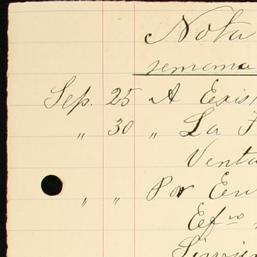 Nota
semana
Sep. 25 A Exis
„ 30 „ La F
Venta
„ „ Por En
Efvo